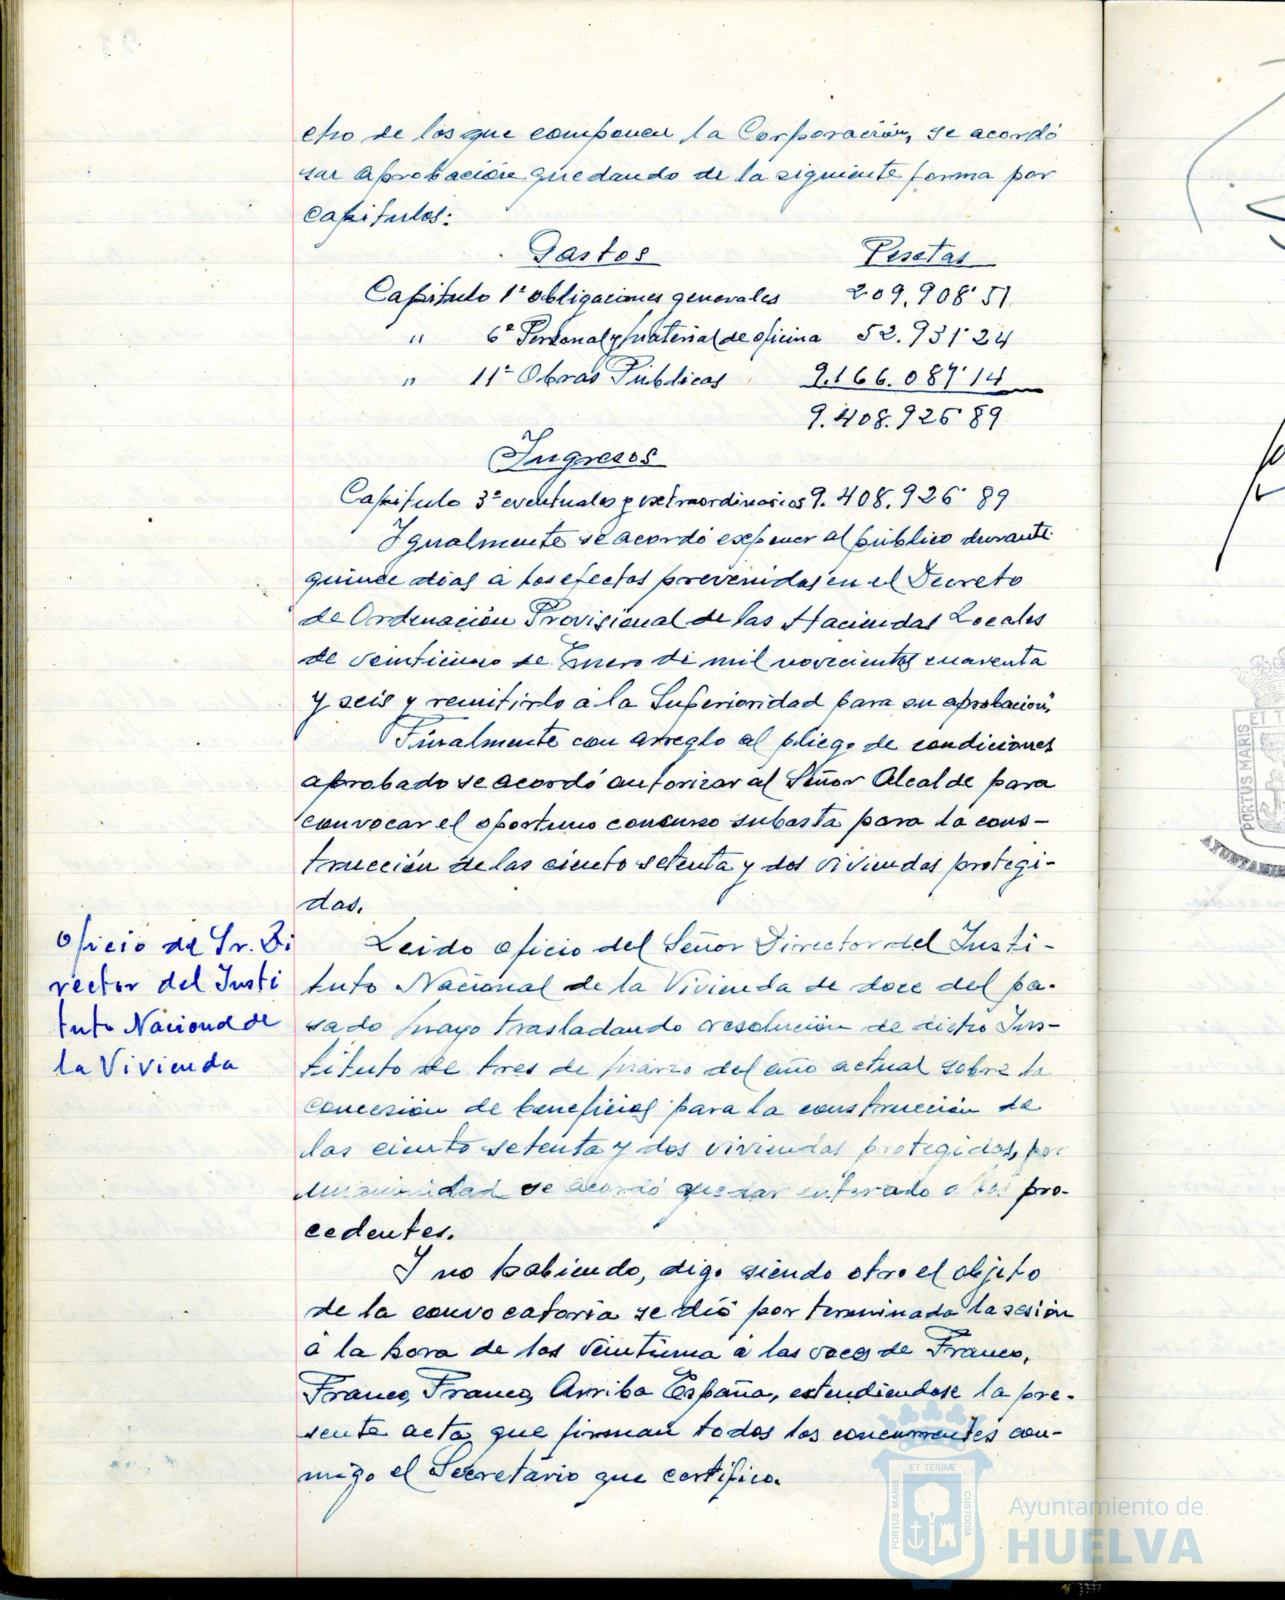 cho de los que componen la Corporación, se acordó
su aprobación quedando de la siguiente forma por
capitulos:
Gastos Pesetas
Capitulo 1º obligaciones generales 209.908'51
" 6º Personal y material de oficina 52.931'24
" 11º Obras Públicas 9.166.087'14
9.408.926'89
Ingresos
Capitulo 3º eventuales y extraordinarios 9.408.926'89
Igualmente se acordó exponer al público durante
quince dias a los efectos prevenidos en el Decreto
de Ordenación Provisional de las Haciendas Locales
de veinticinco de Enero de mil novecientos cuarenta
y seis y remitirlo a la Superioridad para su aprobación.
Finalmente con arreglo al pliego de condiciones
aprobado se acordó autorizar al Señor Alcalde para
convocar el oportuno concurso subasta para la cons-
trucción de las ciento setenta y dos viviendas protegi-
das.
Oficio del Sr. Di
rector del Insti
tuto Nacional de
la Vivienda
Leido oficio del Señor Director del Insti-
tuto Nacional de la Vivienda de doce del pa-
sado mayo trasladando resolución de dicho Ins-
tituto de tres de marzo del año actual sobre la
concesión de beneficios para la construcción de
las ciento setenta y dos viviendas protegidas, por
unanimidad se acordó quedar enterado a los pro-
cedentes.
Y no habiendo, digo siendo otro el objeto
de la convocatoria se dió por terminada la sesión
á la hora de las veintiuna á las voces de Franco,
Franco, Franco, Arriba España, extendiendose la pre-
sente acta que firman todos los concurrentes con-
migo el Secretario que certifico.
PORTUS MARIS
ET TERRÆ
CUSTODIA
Ayuntamiento de
HUELVA
PORTUS MARIS